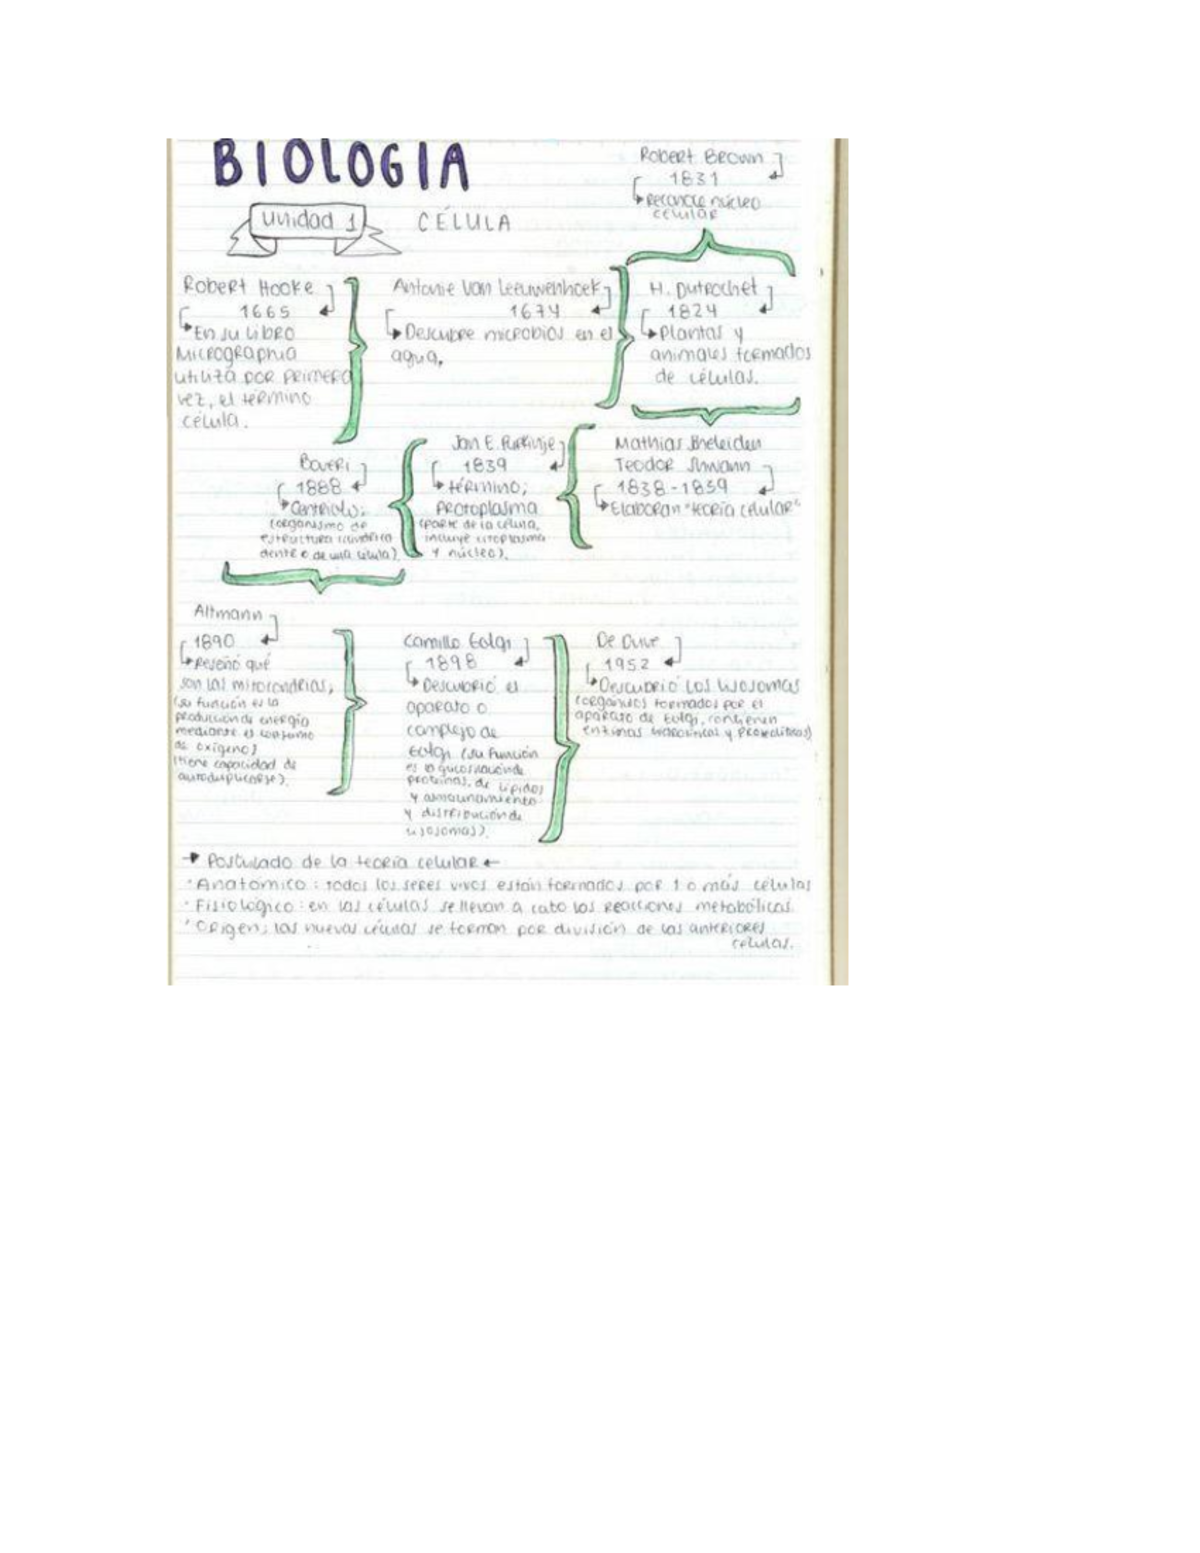 BIOLOGIA
Unidad 1
CÉLULA
Robert Brown
1831
Reconoce núcleo
celular
Robert Hooke
1665
En su libro
Micrographia
utiliza por primera
vez, el término
célula.
Antonie Van Leeuwenhoek
1674
Descubre microbios en el
agua,
H. Dutrochet
1824
Plantas y
animales formados
de células.
Mathias Shcleiden
Teodor Shwann
1838-1859
Elaboran "teoría celular"
Jan E. Purkinje
1839
término;
protoplasma
(parte de la célula,
incluye citoplasma
y núcleo).
Boveri
1888
Centriolo;
(organismo de
estructura cilíndrica
dentro de una célula)
Altmann
1890
Reseñó qué
son las mitocondrias,
(su función es la
producción de energía
mediante el consumo
de oxígeno)
(tiene capacidad de
autoduplicarse).
Camillo Golgi
1898
Descubrió el
aparato o
complejo de
Golgi (su función
es la glucosilación de
proteínas, de lípidos
y almacenamiento
y distribución de
lisosomas).
De Duve
1952
Descubrió los lisosomas
(orgánulos formados por el
aparato de Golgi, contienen
enzimas hidrolíticas y proteolíticas)
Postulado de la teoría celular
· Anatómico: todos los seres vivos están formados por 1 o más células
· Fisiológico: en las células se llevan a cabo las reacciones metabólicas.
· Origen; las nuevas células se forman por división de las anteriores
células.